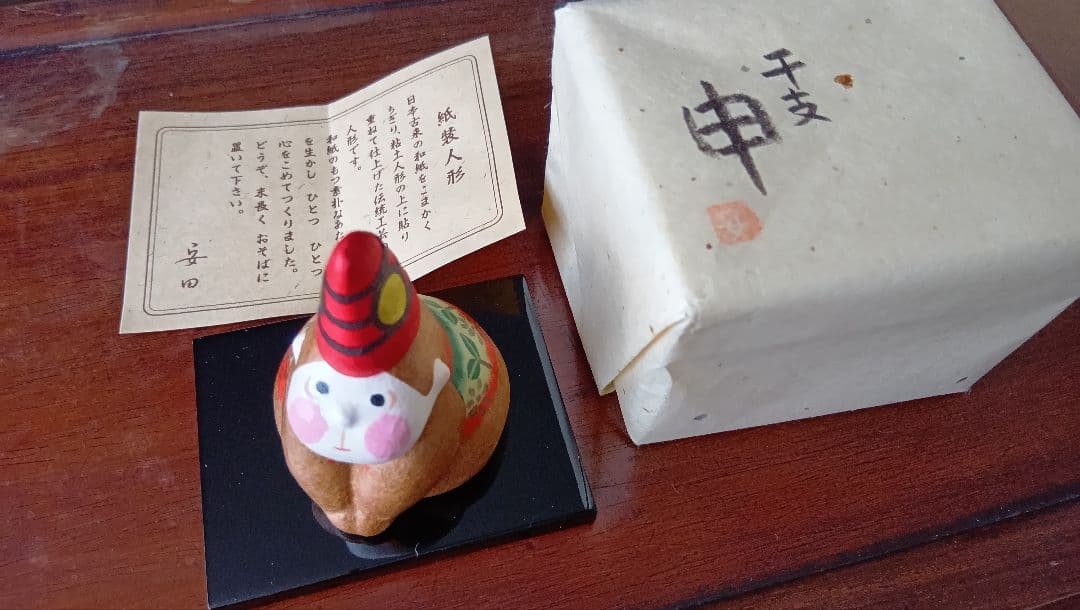 紙装人形
日本古来の和紙をこまかく
ちぎり、粘土人形の上に貼り
重ねて仕上げた伝統工芸
人形です。
和紙のもつ素朴なあ
を生かし ひとつ ひとつ
心をこめてつくりました。
どうぞ、末長く おそばに
置いて下さい。
安田
干支
申